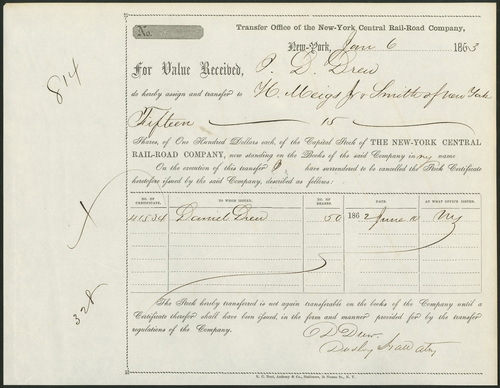 No.
Transfer Office of the New-York Central Rail-Road Company,
New-York, Jan 6 1863
For Value Received, I D. Drew
do hereby assign and transfer to H. Meigs Jr & Smith of New York
Fifteen 15
Shares, of One Hundred Dollars each, of the Capital Stock of THE NEW-YORK CENTRAL
RAIL-ROAD COMPANY, now standing on the Books of the said Company in my name
On the execution of this transfer I have surrendered to be cancelled the Stock Certificate
heretofore issued by the said Company, described as follows:
NO. OF CERTIFICATE. TO WHOM ISSUED. NO. OF SHARES. DATE. AT WHAT OFFICE ISSUED.
41534 Daniel Drew 50 1862 June NY
The Stock hereby transferred is not again transferable on the books of the Company until a
Certificate therefor shall have been issued, in the form and manner provided for by the transfer
regulations of the Company.
D Drew
Atty
814
X
328